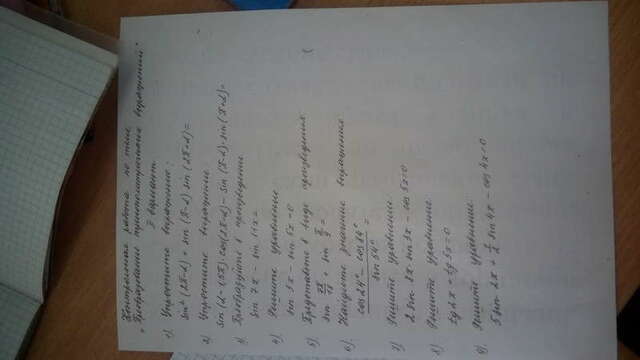 Контрольная работа по теме
„Преобразование тригонометрических выражений"
II вариант
1) Упростите выражение:
sin² (2π-α) + sin (π-α) sin (2π+α)=
2) Упростите выражение:
sin (α-1,5π)·cos(2π-α) - sin (π-α)·sin(π+α)=
3) Преобразуйте в произведение
sin 7x - sin 11x=
4) Решите уравнение
sin 3x - sin 5x=0
5) Представьте в виде произведения
sin 7π/18 + sin π/9 =
6) Найдите значение выражения
cos24° - cos84° / sin 54° =
7) Решите уравнение
2 sin 2x·sin 3x - cos 5x=0
8) Решите уравнение
tg2x + tg5x=0
9) Решите уравнение
5sin 2x + sin 4x - cos 4x=0